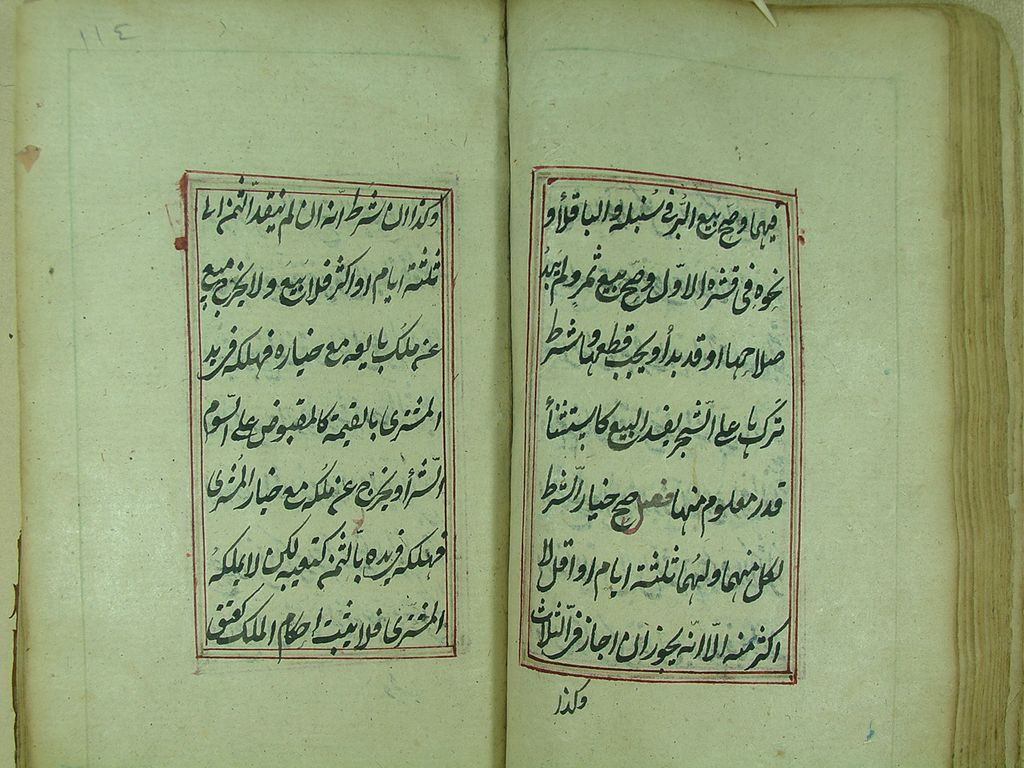 فيهما وصح بيع البر فى سنبله والباقلأ او
نحوه فى قشره الاول وصح بيع ثمر ولم يبد
صلاحها او قد بدأ ويجب قطعها وشرط
تركها على الشجر يفسد البيع كاستثنأ
قدر معلوم منها فصل صح خيار الشرط
لكل منهما ولهما ثلثة ايام او اقل لا
اكثر منه الا انه يجوز ان اجاز فى الثلاث
وكذا
١١٤
وكذا ان شرط انه ان لم ينقد الثمن الى
ثلثة ايام او اكثر فلا بيع ولا يخرج مبيع
عن ملك بايعه مع خياره فهلكه فى يد
المشترى بالقيمة كالمقبوض على السوم
الشرأ ويخرج عن ملكه مع خيار المشترى
فهلكه فى يده بالثمن كتعيبه لكن لا يملكه
المشترى فلا يثبت احكام الملك كعتق